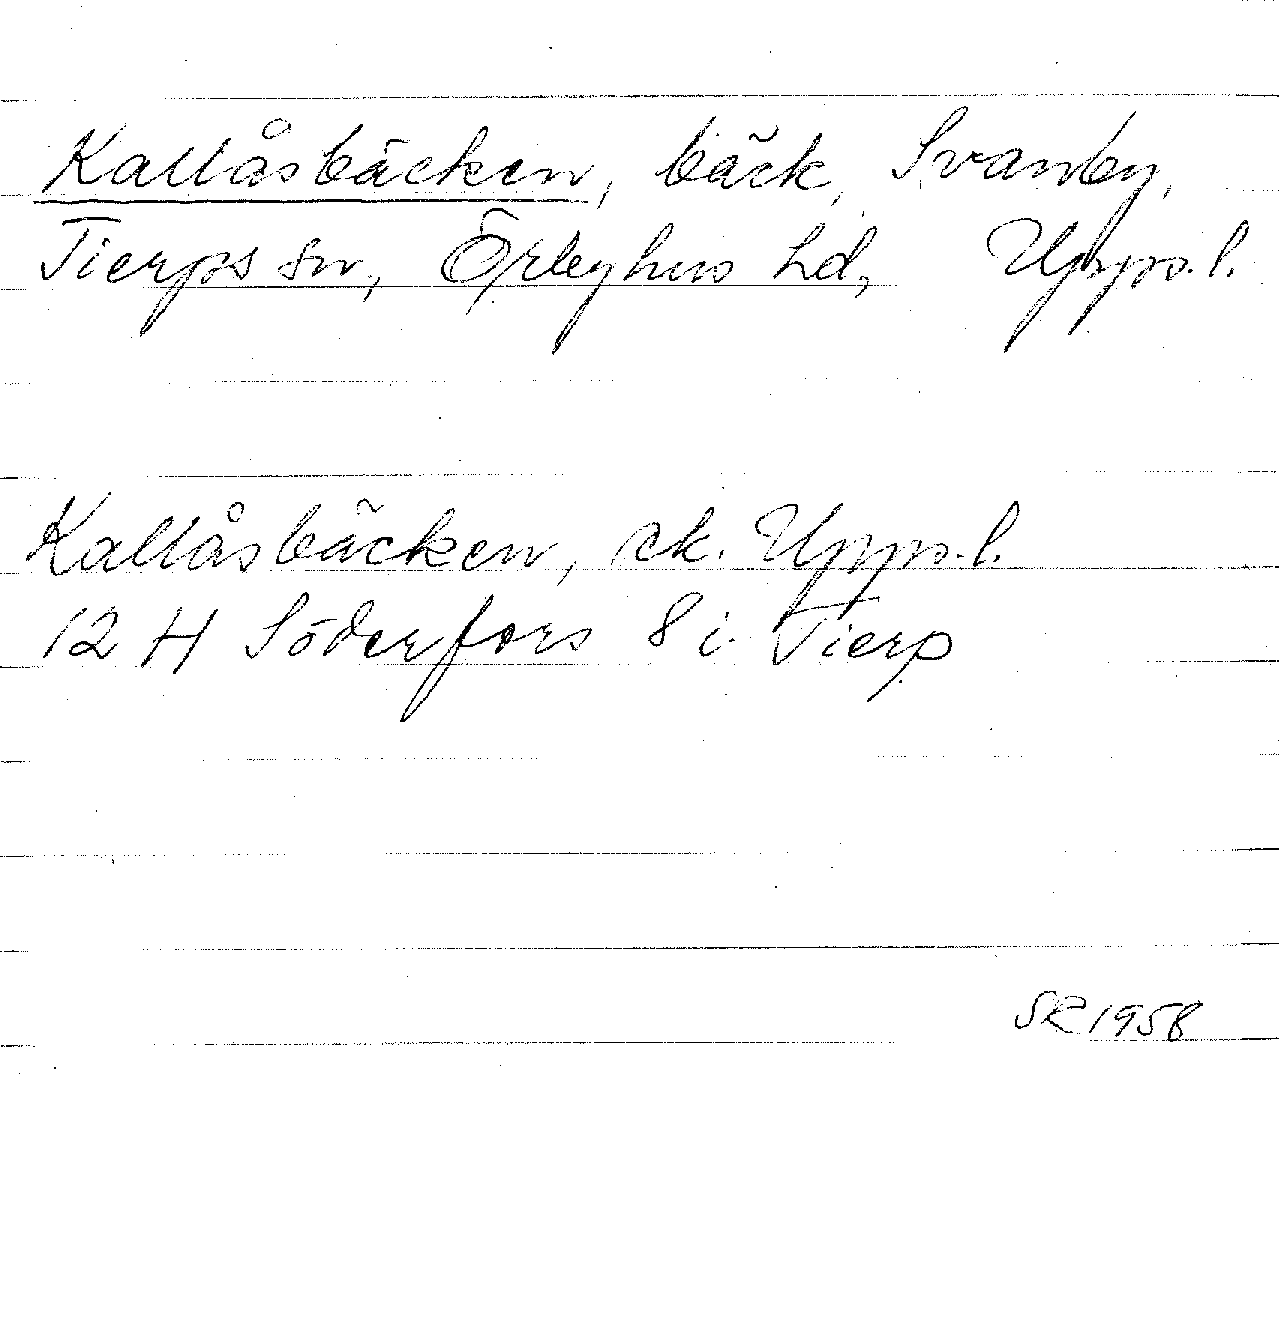 Kallåsbäcken, bäck, Svanby,
Tierps sn, Örbyhus hd, Upps. l.
Kallåsbäcken, ek. Upps. l.
12 H Söderfors 8 i Tierp
SR 1958